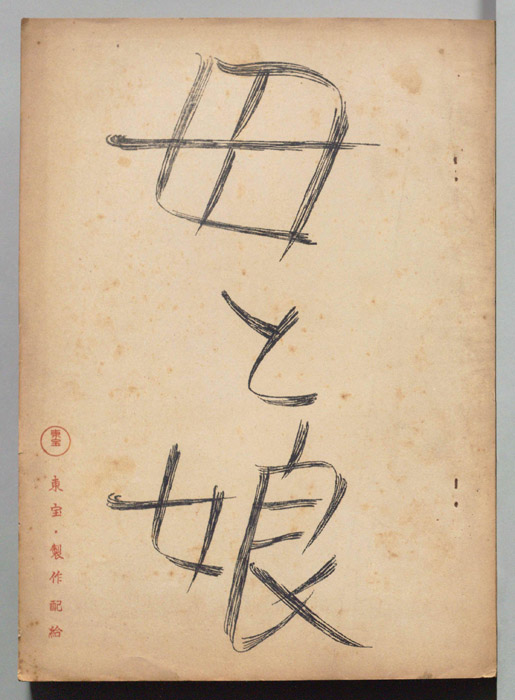 母と娘
東宝
東宝・製作配給